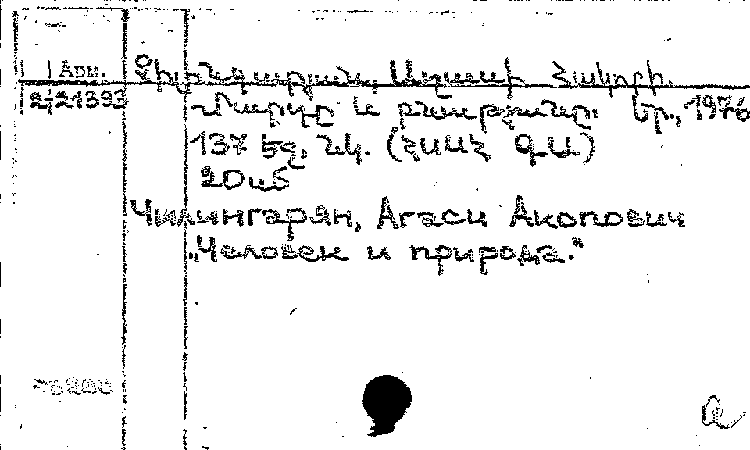 Арм. Չիլինգարյան, Աղասի Հակոբի.
2/21393 Մարդը և բնությունը. Եր., 1976
137 էջ, նկ. (ՀՍՍՀ ԳԱ)
Чилингарян, Агаси Акопович
„Человек и природа."
а